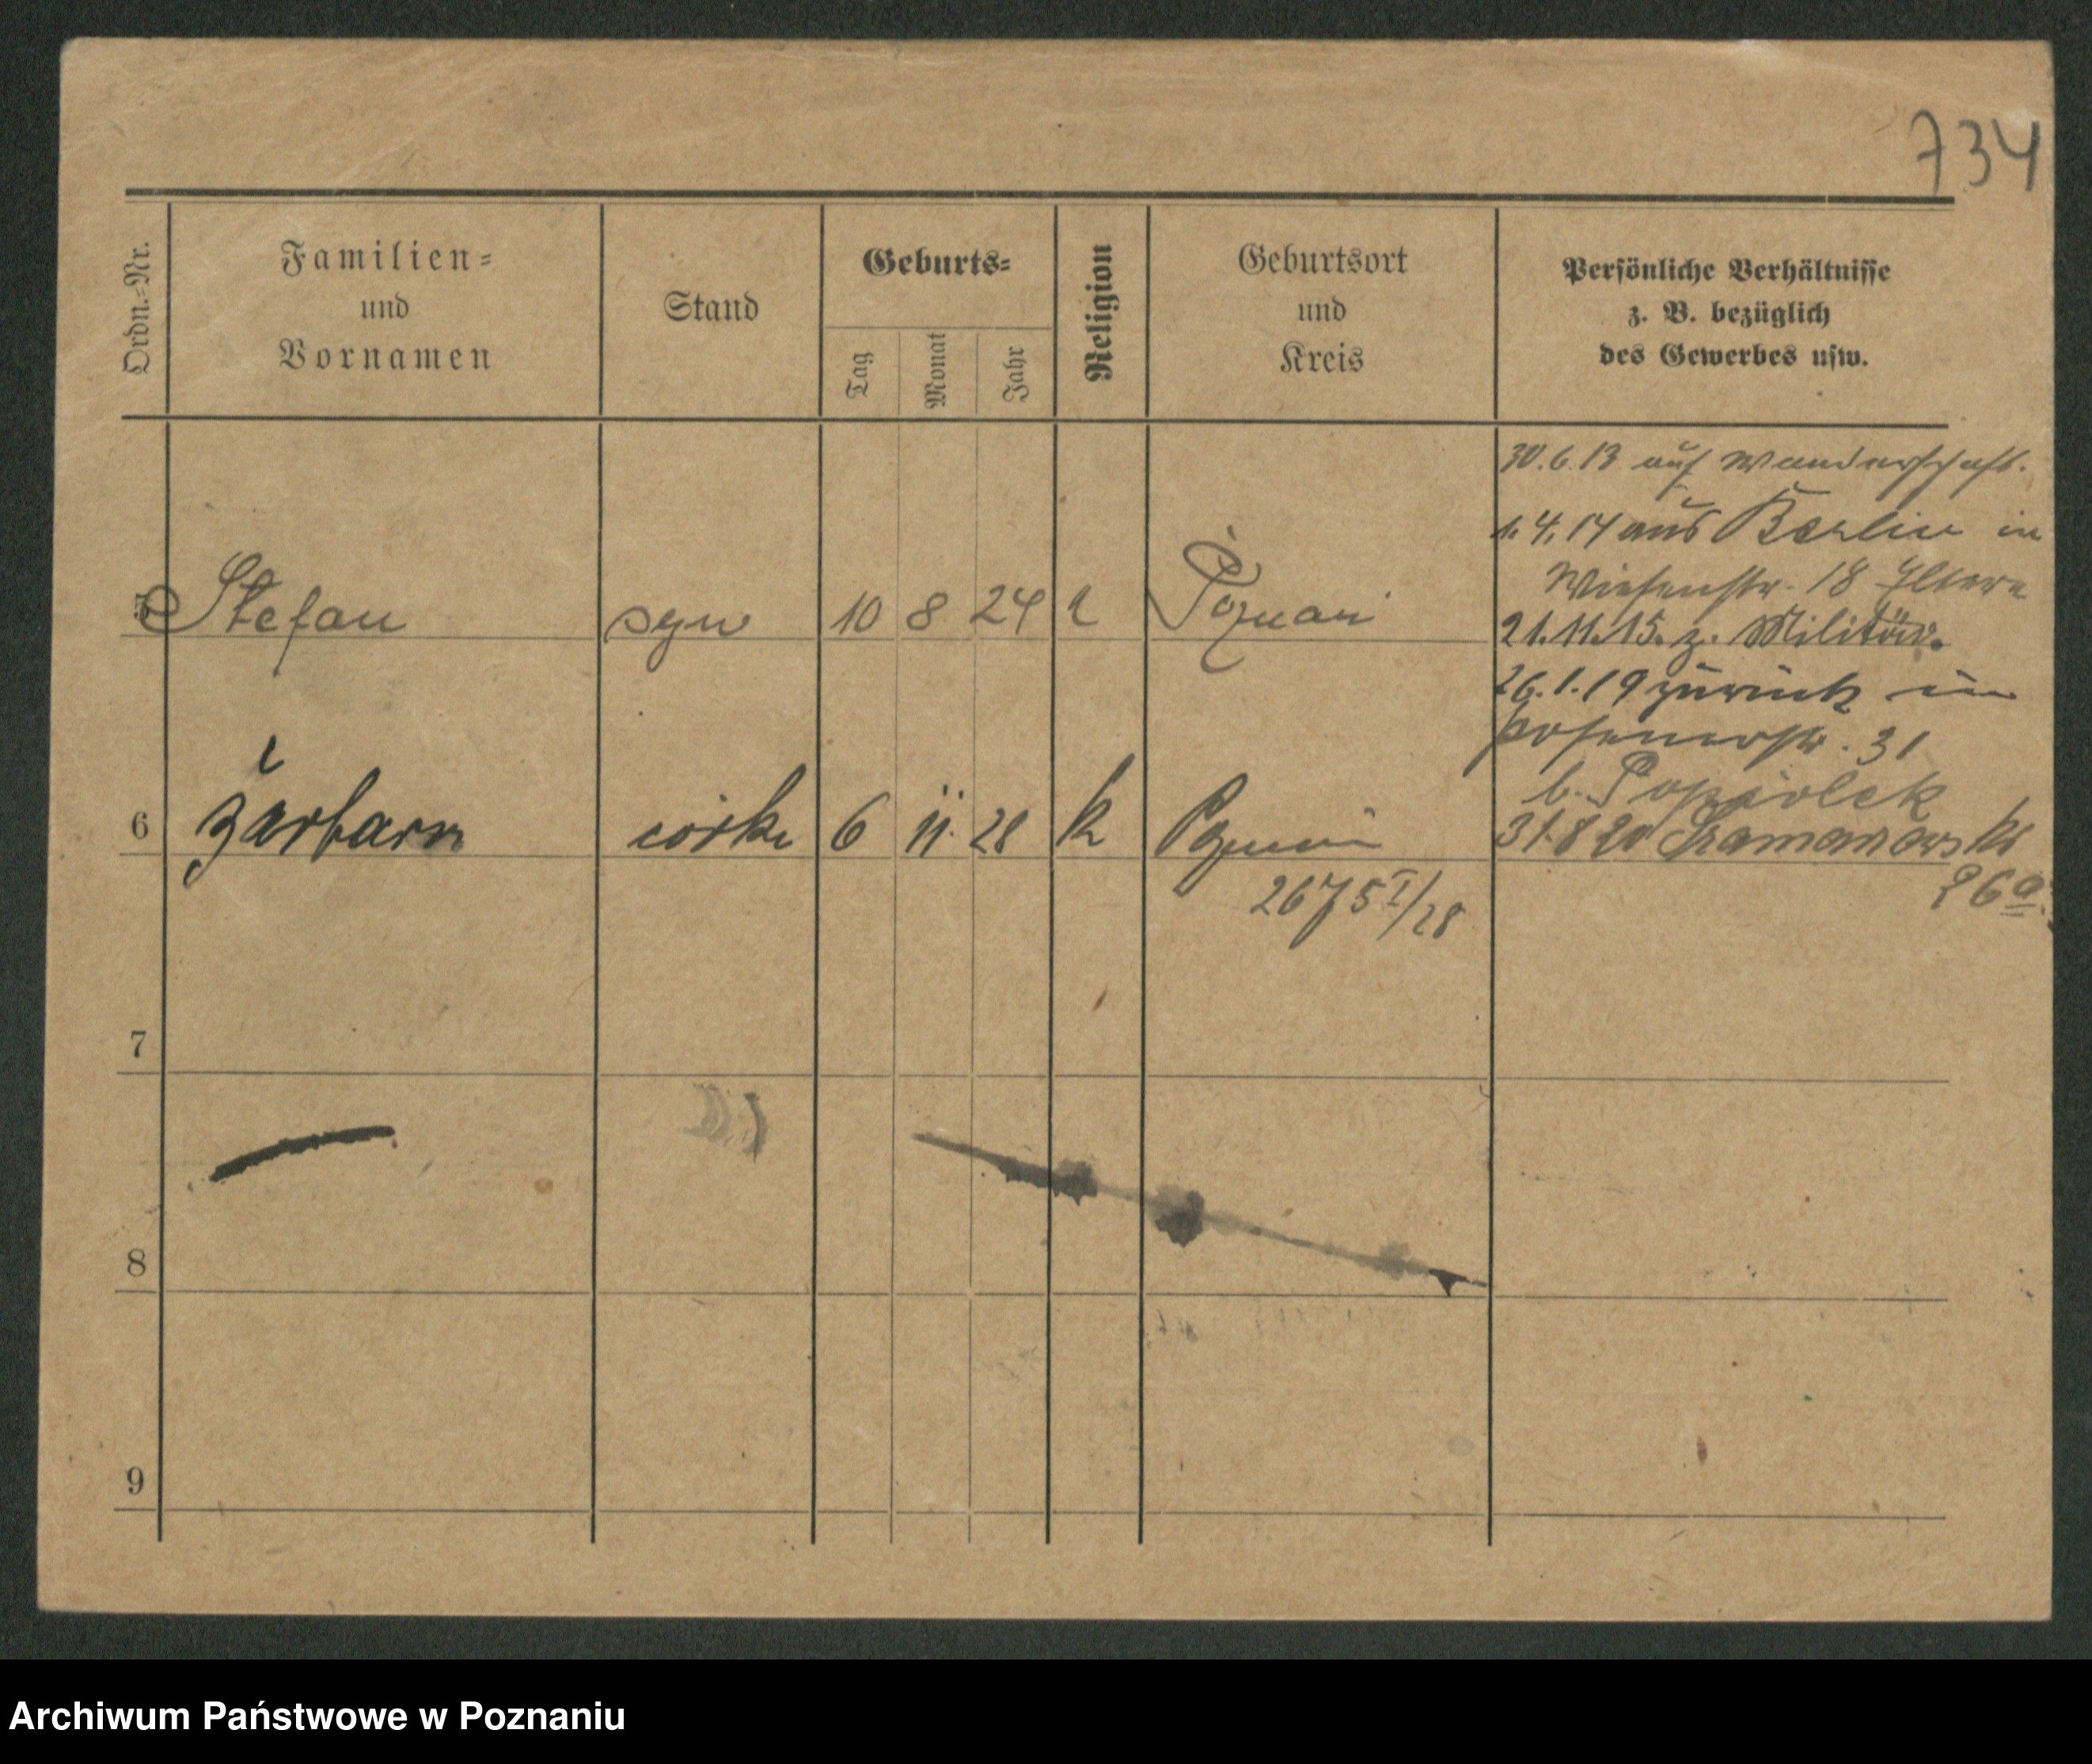 734
Ordn.-Nr.
Familien-
und
Vornamen
Stand
Geburts-
Tag
Monat
Jahr
Religion
Geburtsort
und
Kreis
Persönliche Verhältnisse
z. B. bezüglich
des Gewerbes usw.
30.6.13 auf Wanderschaft.
1.4.14 aus Berlin in
Wiesenstr. 18
5 Stefan syn 10 8 24 k Poznań
21.11.15. z. Militär.
26.1.19 zurück in
Posenerstr. 31
b. Popiolek
6 córka 6 11. 28 k Poznań
31.8 20
26a.
2675 I/28
7
8
9
Archiwum Państwowe w Poznaniu